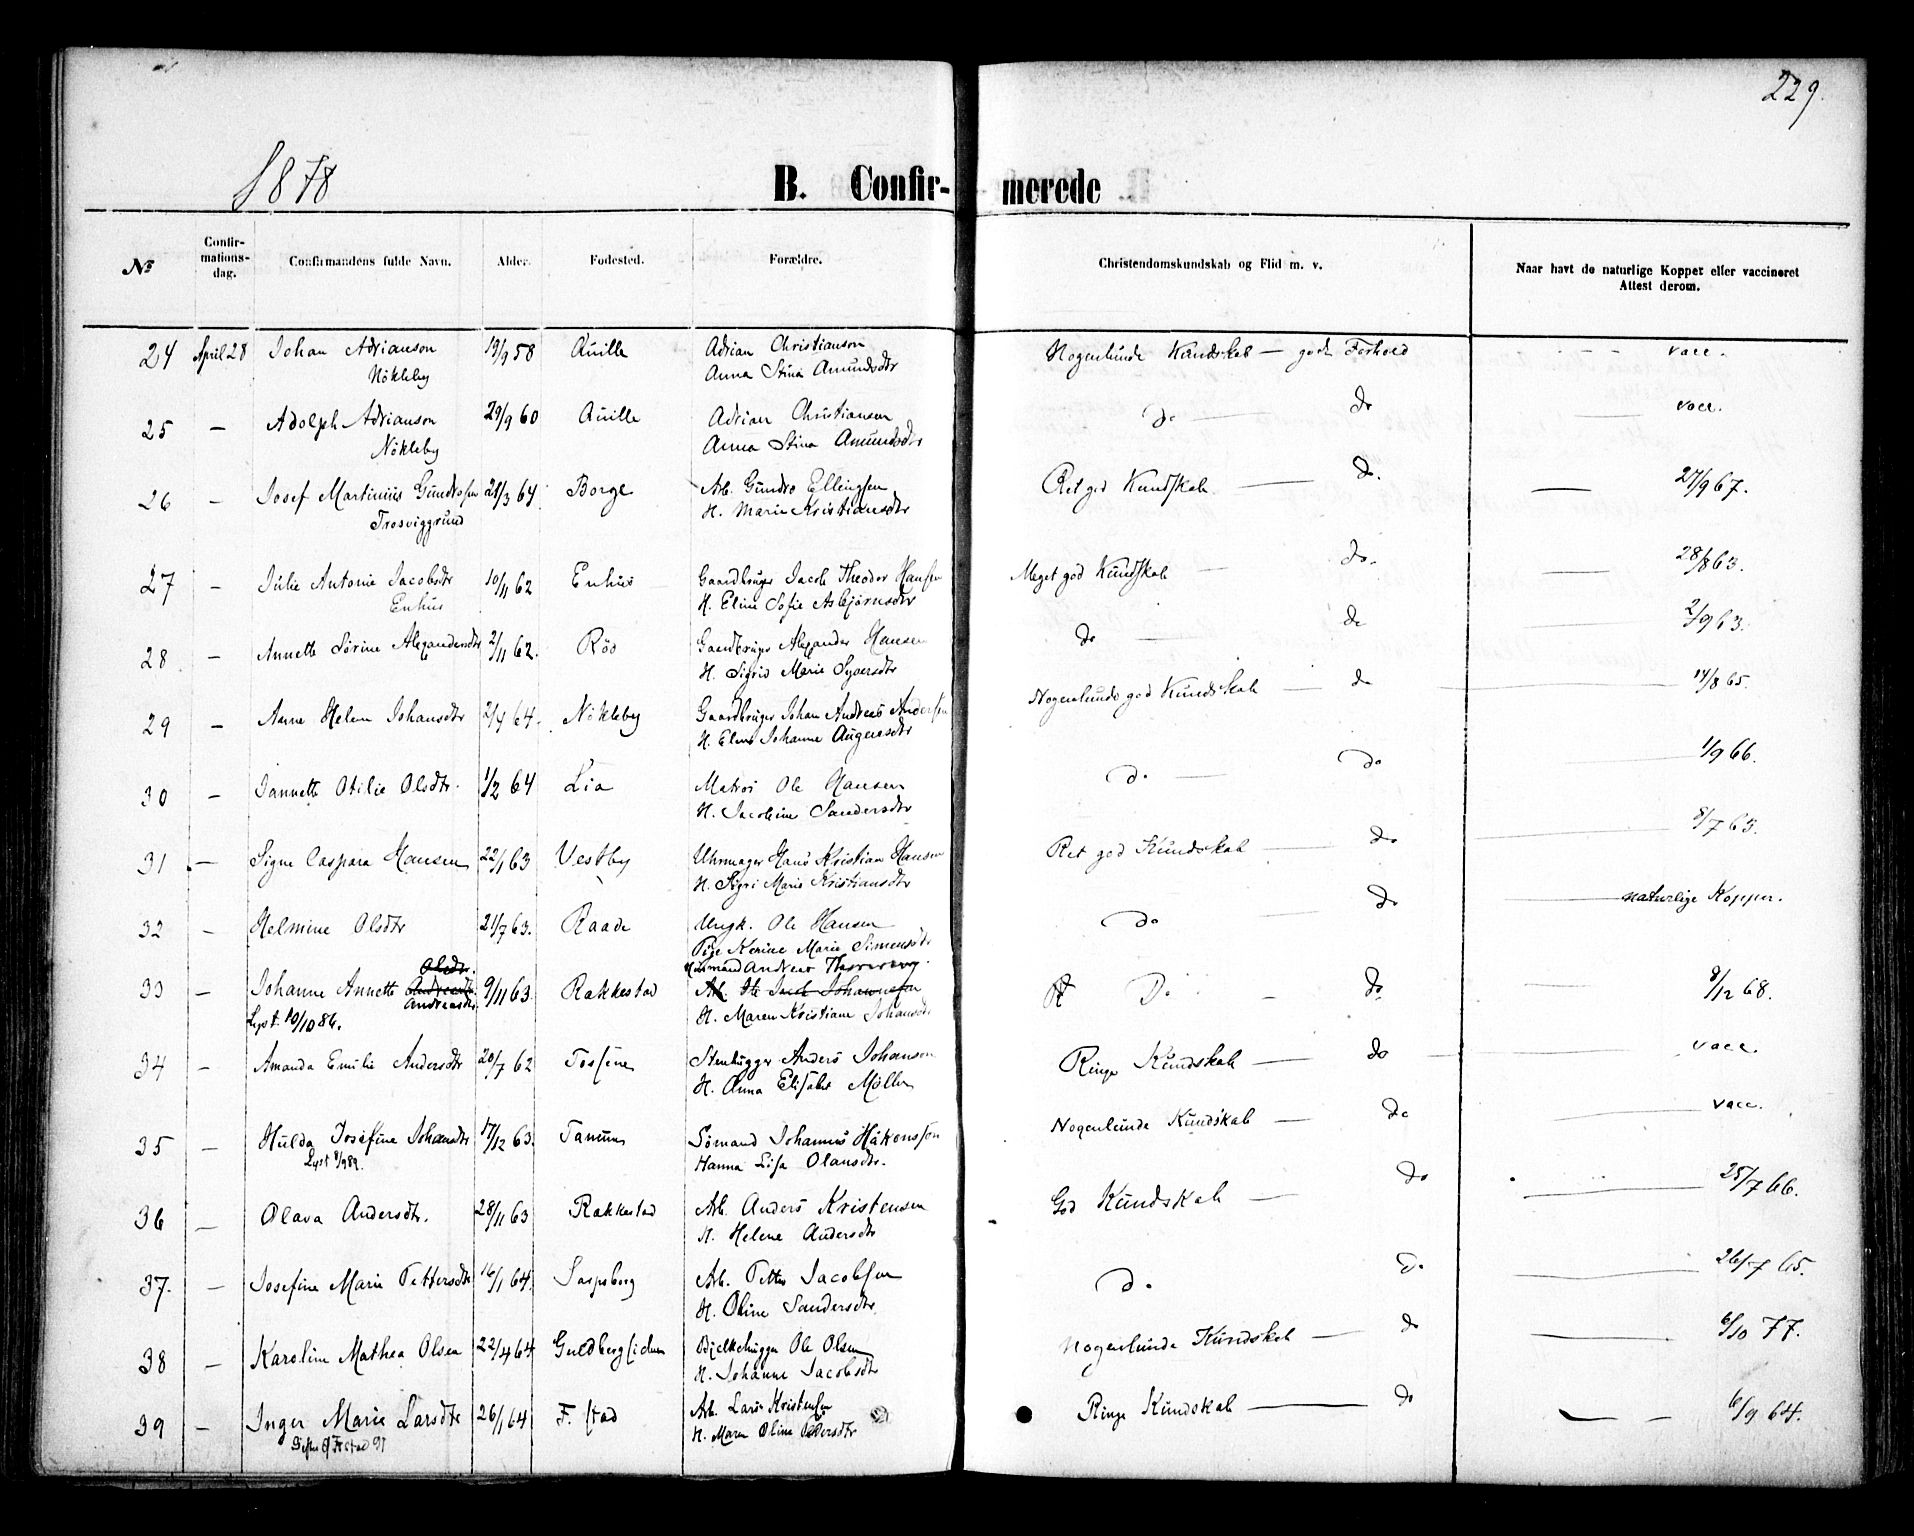 229.
1878
B. Confir- merede
№
Confir-
mations-
dag.
Confirmandens fulde Navn.
Alder.
Fødested.
Forældre.
Christendomskundskab og Flid m. v.
Naar havt de naturlige Kopper eller vaccineret
Attest derom.
24 April 28 Johan Adrianson 19/9 58 Qville Adrian Christianson Nogenlunde Kundskab — godt Forhold vacc.
Nökleby Anna Stina Amundsdtr
25 — Adolph Adrianson 29/9 60 Qville Adrian Christiansen Do — do vacc.
Nökleby Anna Stina Amundsdtr
26 — Josef Martinius Gundrosen 21/3 64. Borge Arb. Gundro Ellingsen Ret god Kundskab — do. — 27/9 67.
Trosviggrund H. Marie Kristiansdtr
27 — Julie Antonie Jacobsdtr 10/11 62 Enhus Gaardbruger Jacob Theodor Hansen Meget god Kundskab — do. — 28/8 63.
Enhus H. Eline Sofie Asbjørnsdtr
28 — Annette Sörine Alexandersdtr 2/11 62. Röd Gaardbruger Alexander Hansen do — do — 2/9 63.
H. Sigrid Marie Syversdtr
29 — Anne Helene Johansdtr 2/4 64. Nökleby Gaardbruger Johan Andreas Andersen Nogenlunde god Kundskab — do — 14/8 65.
H. Elene Johanne Augensdtr
30 — Jannette Otilie Olsdtr. 1/2 64 Lia Matros Ole Hansen do — do — 1/9 66.
H. Jacobine Sandersdtr
31 — Signe Caspara Hansen 22/1 63 Vestby Uhrmager Hans Kristian Hansen Ret god Kundskab — do — 8/7 63.
H. Sigri Marie Kristiansdtr
32 — Helmine Olsdtr 21/7 63. Raade Ungk. Ole Hansen do — do — naturlige Kopper.
Pige Karine Marie Simensdtr
Olsdtr. Husmand Andreas
33 — Johanne Annette Andreasdtr 9/11 63. Rakkestad Arb. Ole Jacob Johannesen Do — do — 8/12 68.
Andreasdtr.
Lyst. 10/10 86. H. Maren Kristiane Johansdtr
34 — Amanda Emilie Andersdtr 20/7 62 Tossene Stenhugger Anders Johanson Ringe Kundskab — do — vacc.
H. Anna Elisabet Møller
35 — Hulda Josefine Johansdtr 17/12 63. Tanum Sömand Johannes Håkonsson Nogenlunde Kundskab — do — vacc.
Lyst 8/9 89. Hanna Lisa Olansdtr.
36 — Olava Andersdtr. 28/11 63 Rakkestad Arb. Anders Kristensen God Kundskab — do — 25/7 66.
H. Helene Andersdtr
37. — Josefine Marie Pettersdtr 16/1 64. Sarpsborg Arb. Petter Jacobsen do. do. — 26/7 65.
H. Oline Sandersdtr.
38 — Karoline Mathea Olsen 22/4 64 Guldbergsiden Bjelkehugger Ole Olsen Nogenlunde Kundskab — do — 6/10 77.
H. Johanne Jacobsdtr
39 — Inger Marie Larsdtr 26/1 64 F. stad Arb. Lars Kristensen Ringe Kundskab — do — 6/9 64.
H. Maren Oline Pedersdtr